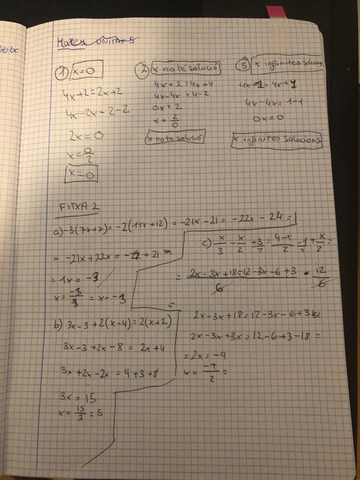 Mates Unitat 5
① x=0
4x+2=2x+2
4x-2x=2-2
2x=0
x=0/2
x=0
② x no té solució
4x+2=4x+4
4x-4x=4-2
0x=2
x=2/0
x no té solució
③ x infinites solucions
4x+1=4x+1
4x-4x=1-1
0x=0
x infinites solucions
FITXA 2
a) -3(7x+7)=-2(11x+12)=-21x-21=-22x-24=
=-21x+22x=-24+21=
=1x=-3
x=-3/1=x=-3
b) 3x-3+2(x-4)=2(x+2)
3x-3+2x-8=2x+4
3x+2x-2x=4+3+8
3x=15
x=15/3=5
c) x/3-x/2+3=4-x/2-1+x/2=
=2x-3x+18=12-3x-6+3/6
2x-3x+18=12-3x-6+3
2x-3x+3x=12-6+3-18=
=2x=-9
x=-9/2=